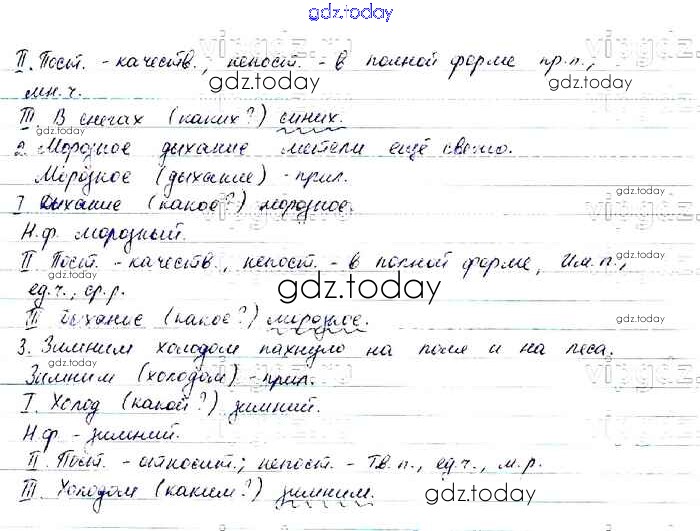 gdz.today
II. Пост. - качеств., непост. - в полной форме пр.п.,
мн.ч.
III В снегах (каких?) синих.
2. Морозное дыхание метели ещё свежо.
Морозное (дыхание) - прил.
I Дыхание (какое?) морозное.
Н.ф. морозный.
II Пост. - качеств., непост. - в полной форме, Им.п.,
ед.ч., ср.р.
III Дыхание (какое?) морозное.
3. Зимним холодом пахнуло на поля и на леса.
Зимним (холодом) - прил.
I. Холод (какой?) зимний.
Н.ф - зимний.
II. Пост. - относит.; непост. - Тв.п., ед.ч., м.р.
III. Холодом (каким?) зимним.